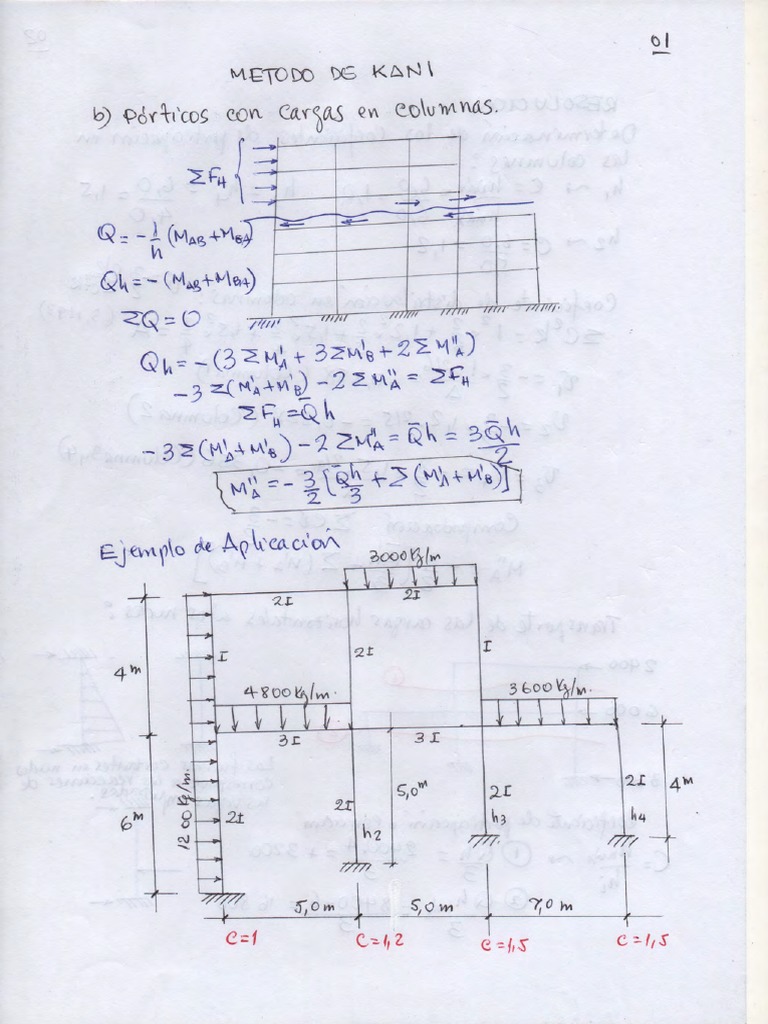 01
METODO DE KANI
b) Pórticos con cargas en columnas.
ΣF_H
Q = -1/h (M_AB + M_BA)
Qh = -(M_AB + M_BA)
ΣQ = 0
Qh = -(3ΣM'_A + 3ΣM'_B + 2ΣM''_A)
-3Σ(M'_A + M'_B) - 2ΣM''_A = ΣF_H
ΣF_H = Q̄h
-3Σ(M'_A + M'_B) - 2ΣM''_A = Q̄h = 3Q̄h/2
M''_A = -3/2 [Q̄h/3 + Σ(M'_A + M'_B)]
Ejemplo de Aplicación
3000 kg/m
2I
2I
4m
I
2I
I
4800 kg/m.
3600 kg/m.
3I
3I
1200 kg/m.
6m
2I
2I
5,0m
2I
2I
4m
h2
h3
h4
5,0m
5,0m
7,0m
C=1
C=1,2
C=1,5
C=1,5